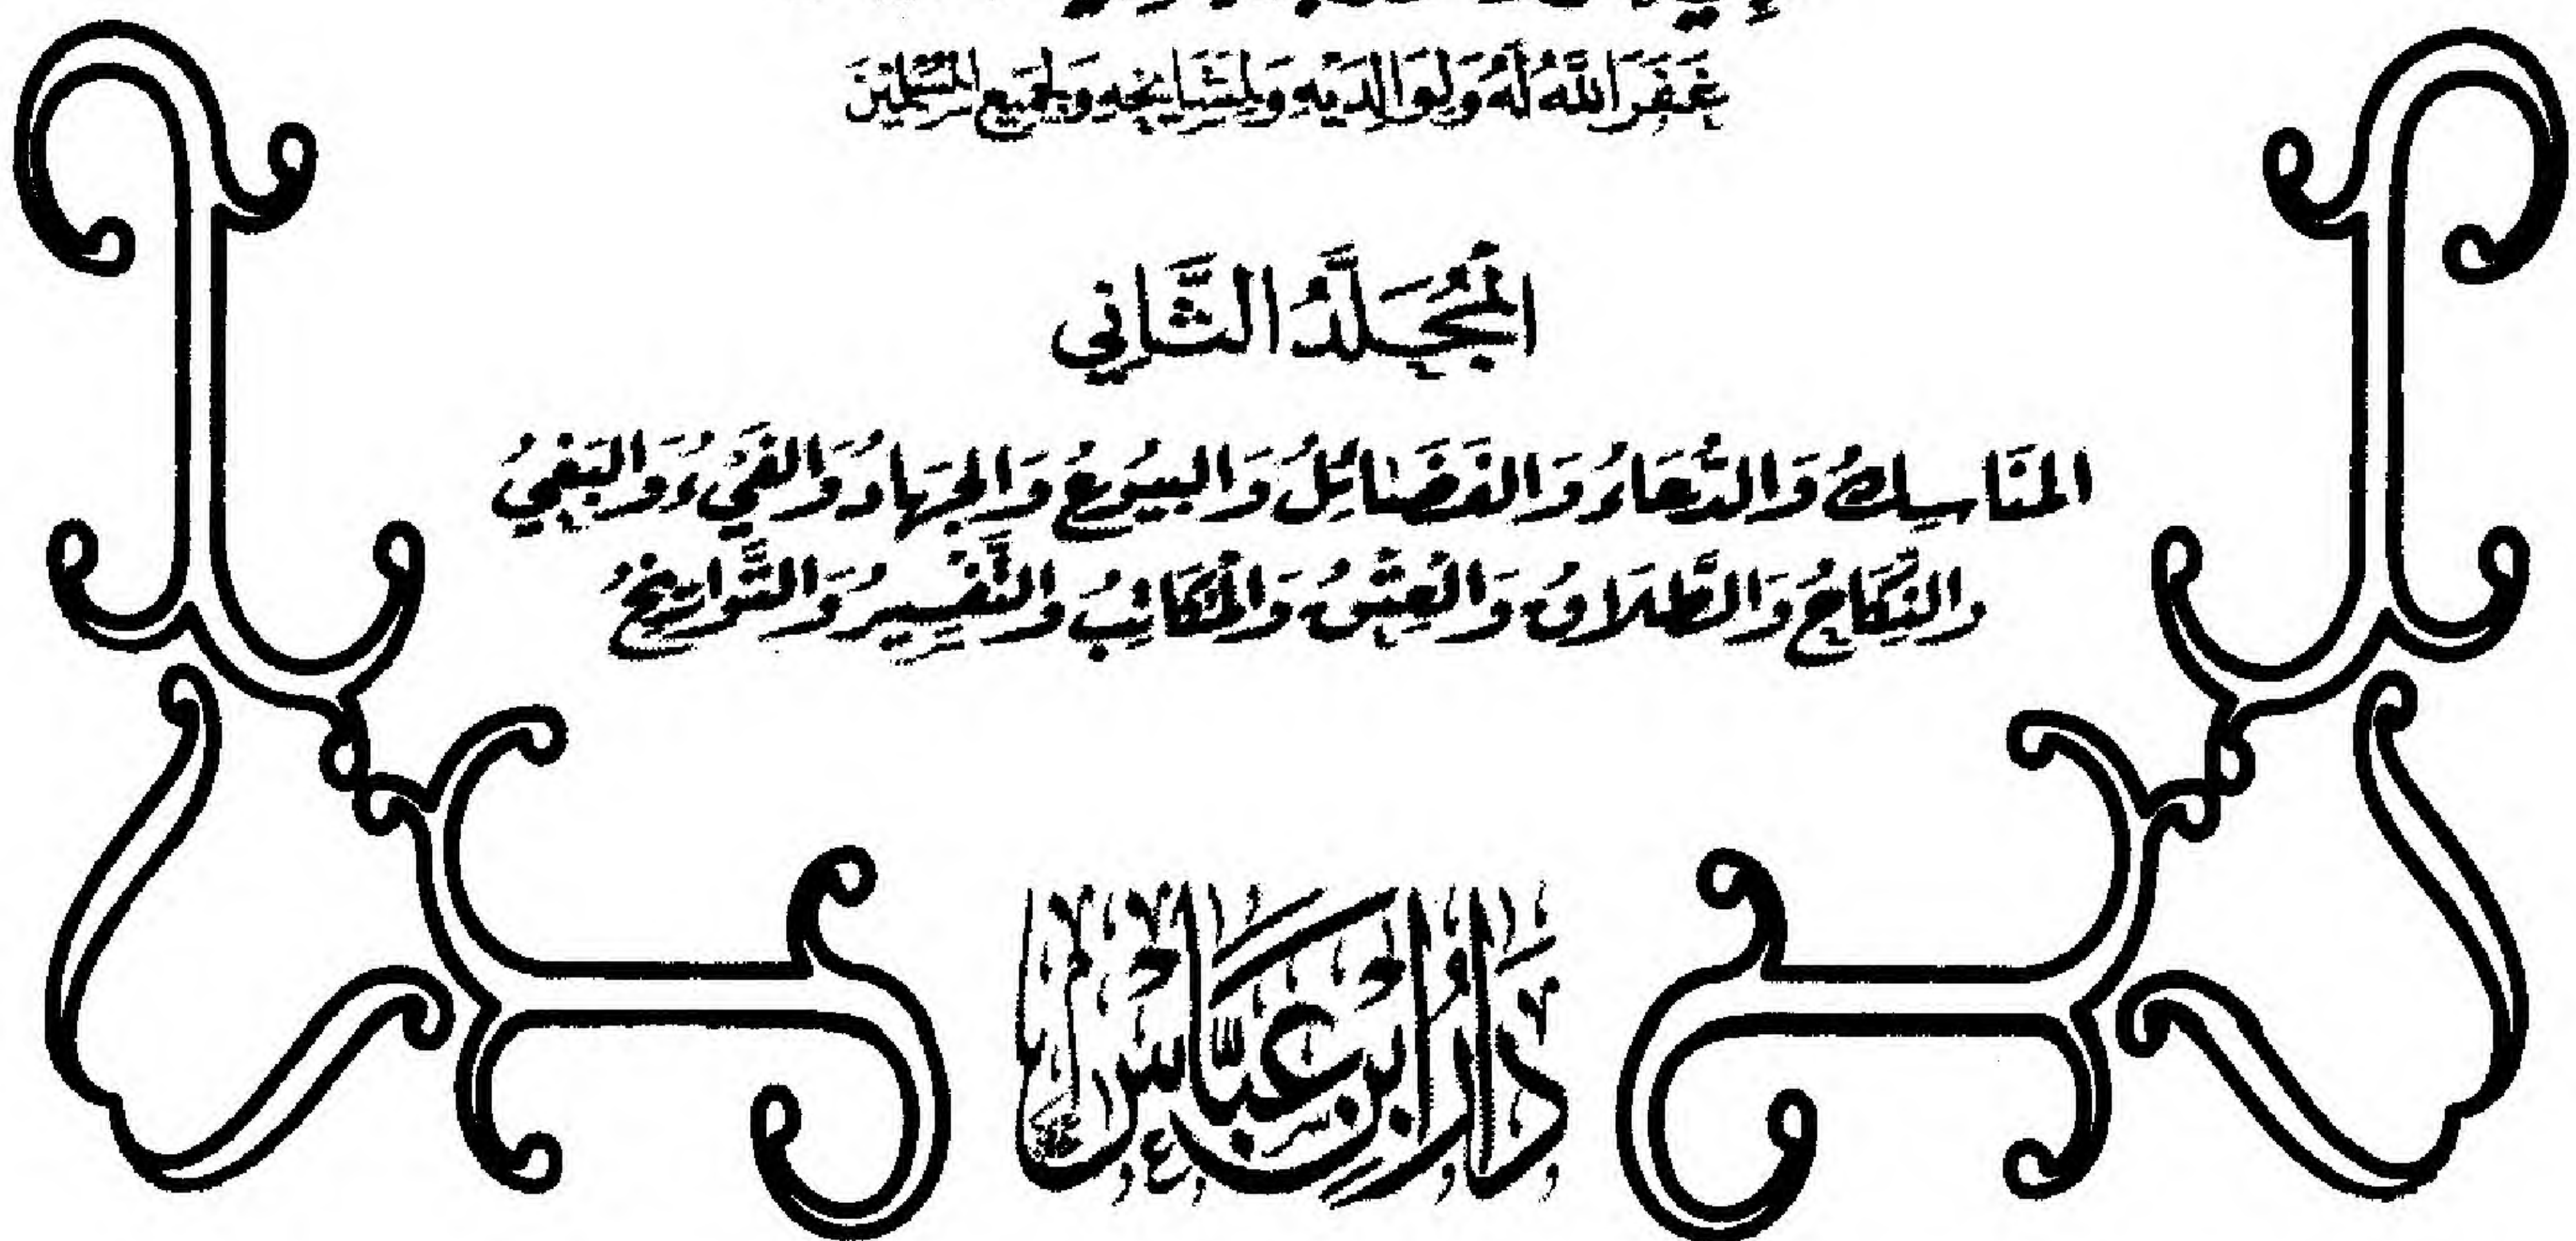 غَفَرَ اللَّهُ لَهُ وَلِوَالِدَيْهِ وَلِمَشَايِخِهِ وَلِجَمِيعِ الْمُسْلِمِينَ
الْمُجَلَّدُ الثَّانِي
الْمَنَاسِكُ وَالدُّعَاءُ وَالْفَضَائِلُ وَالْبُيُوعُ وَالْجِهَادُ وَالْفَيْءُ وَالْبَغْيُ
وَالنِّكَاحُ وَالطَّلَاقُ وَالْعِتْقُ وَالْمُكَاتِبُ وَالتَّفْسِيرُ وَالتَّوَارِيخُ
دَارُ ابْنِ عَبَّاسٍ